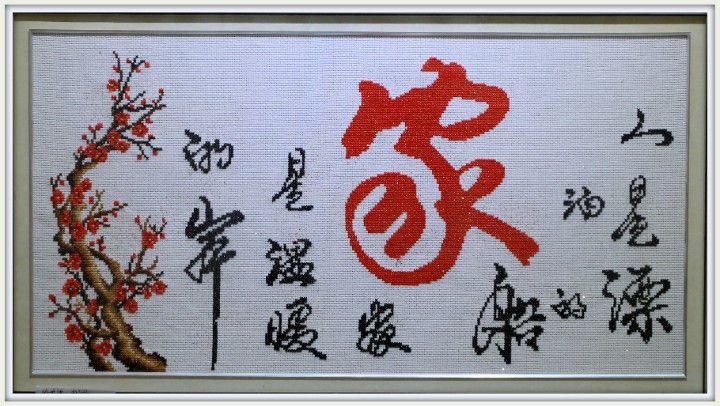 家
人是漂
泊的
船
家
是温暖
的岸